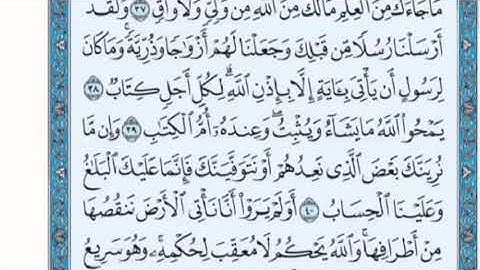 مَا جَاءَكَ مِنَ الْعِلْمِ مَا لَكَ مِنَ اللَّهِ مِن وَلِيٍّ وَلَا وَاقٍ ٣٧ وَلَقَدْ
أَرْسَلْنَا رُسُلًا مِّن قَبْلِكَ وَجَعَلْنَا لَهُمْ أَزْوَاجًا وَذُرِّيَّةً وَمَا كَانَ
لِرَسُولٍ أَن يَأْتِيَ بِـَٔايَةٍ إِلَّا بِإِذْنِ اللَّهِ لِكُلِّ أَجَلٍ كِتَابٌ ٣٨
يَمْحُوا اللَّهُ مَا يَشَاءُ وَيُثْبِتُ وَعِندَهُ أُمُّ الْكِتَٰبِ ٣٩ وَإِن مَّا
نُرِيَنَّكَ بَعْضَ الَّذِي نَعِدُهُمْ أَوْ نَتَوَفَّيَنَّكَ فَإِنَّمَا عَلَيْكَ الْبَلَٰغُ
وَعَلَيْنَا الْحِسَابُ ٤٠ أَوَلَمْ يَرَوْا أَنَّا نَأْتِي الْأَرْضَ نَنقُصُهَا
مِنْ أَطْرَافِهَا وَاللَّهُ يَحْكُمُ لَا مُعَقِّبَ لِحُكْمِهِ وَهُوَ سَرِيعُ